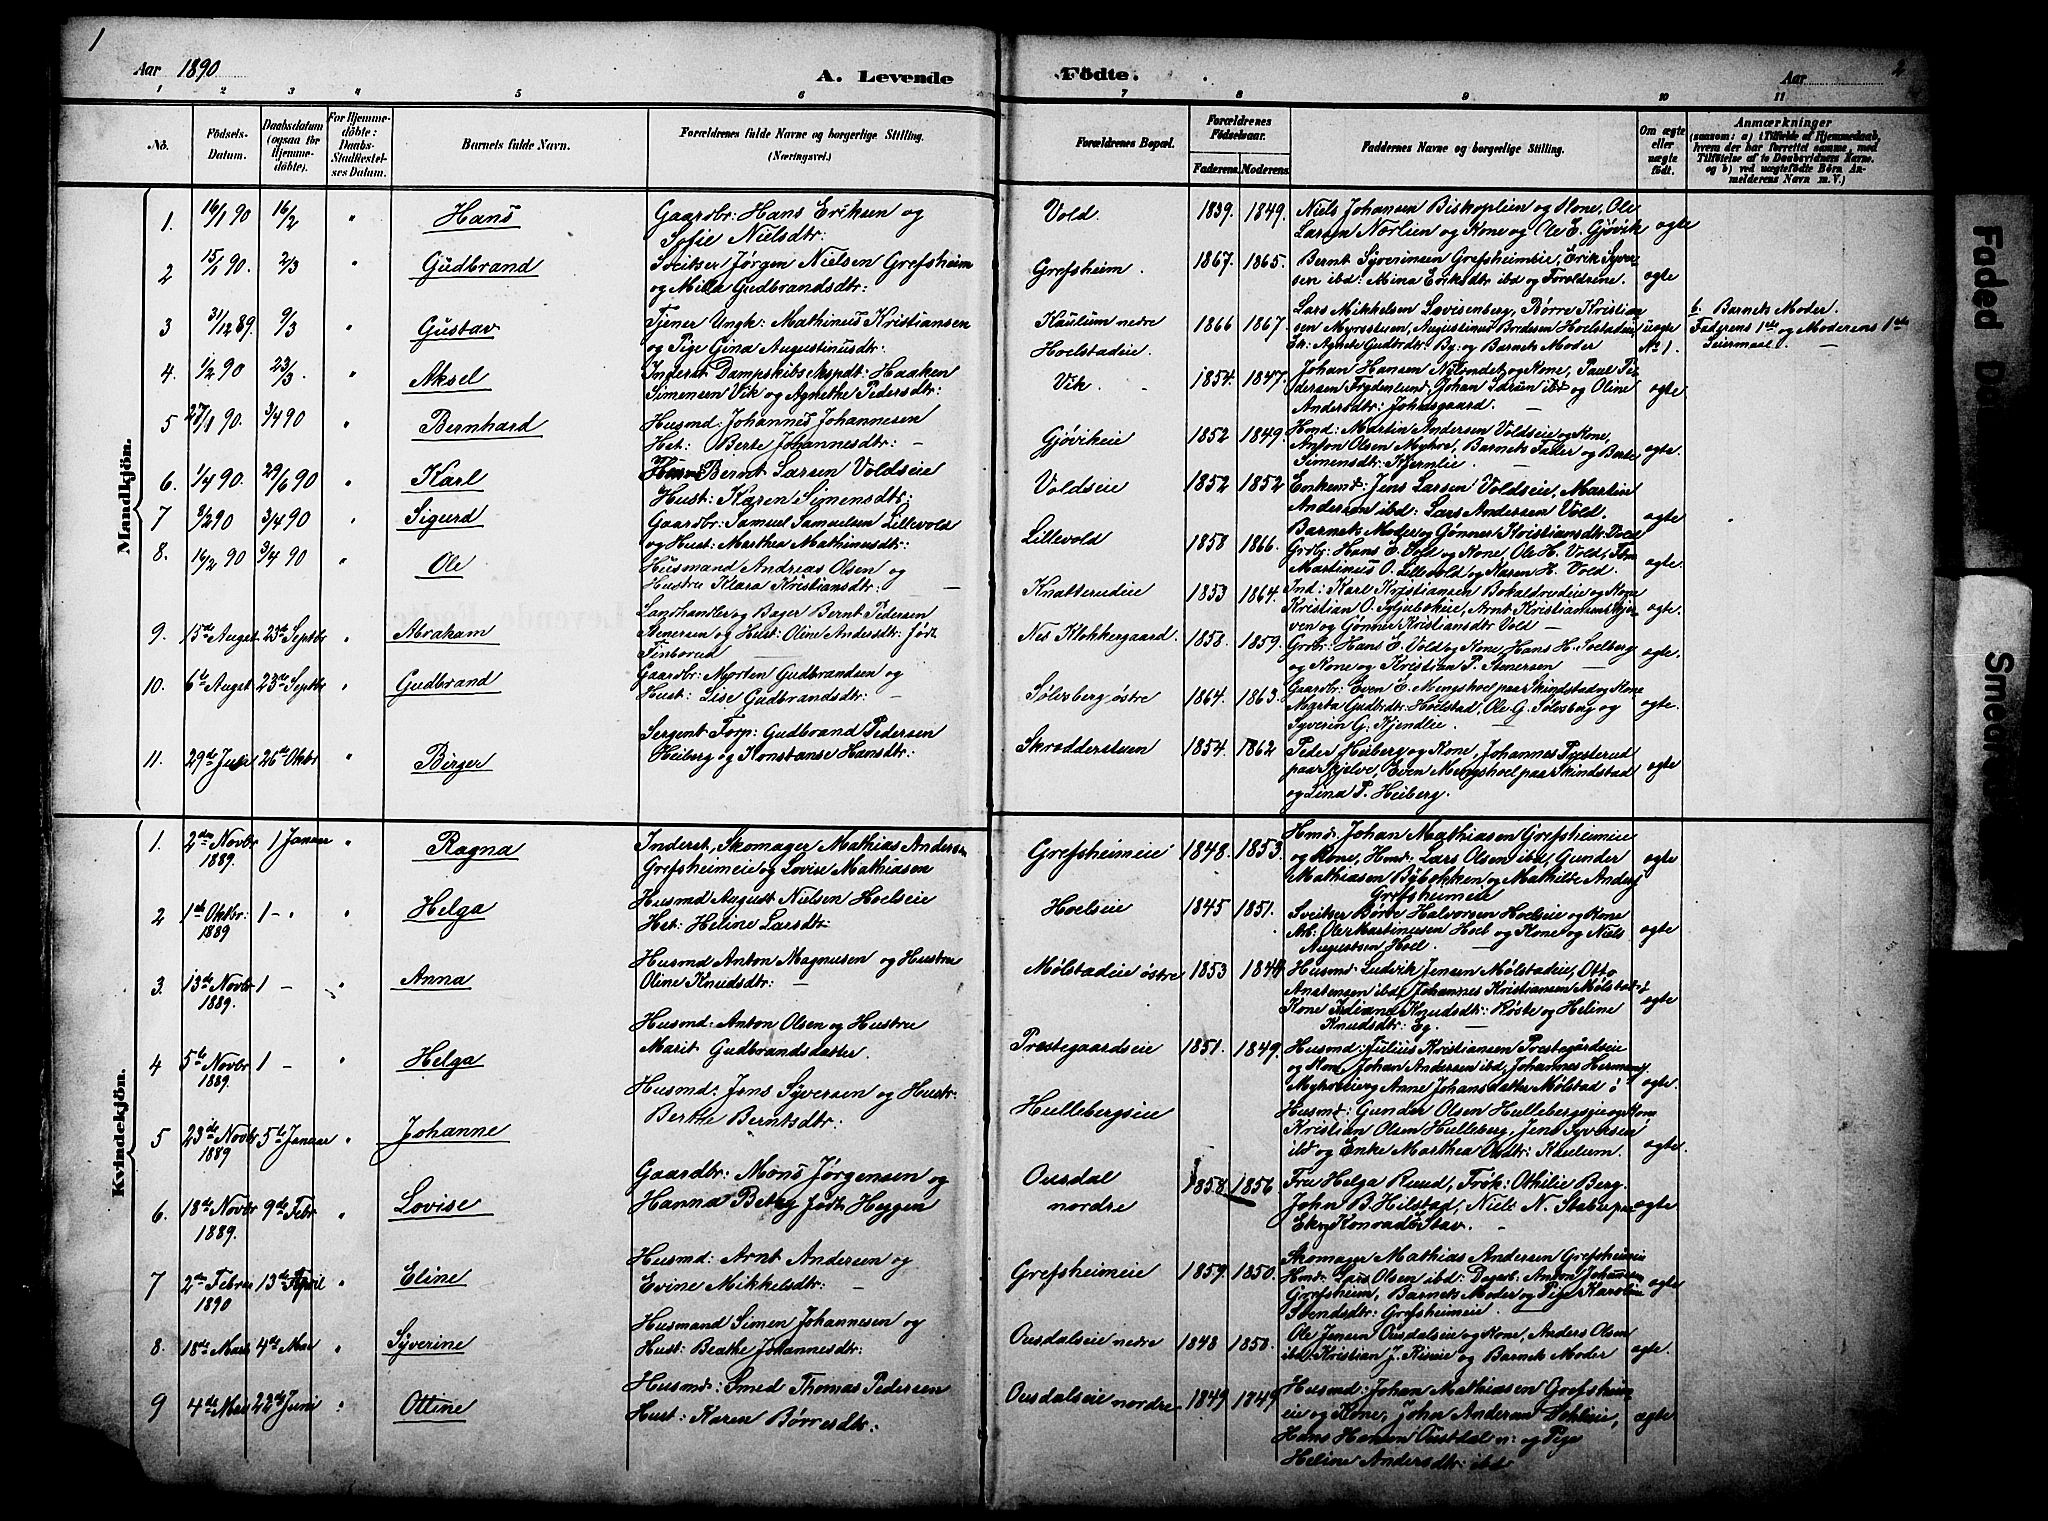 1
Aar 1890
A. Levende
Födte.
Aar
2
1 2 3 4 5 6 7 8 9 10 11
No.
Födsels-Datum.
Daabsdatum (ogsaa for Hjemmedöbte).
For Hjemmedöbte: Daabs-Stadfæstelses Datum.
Barnets fulde Navn.
Forældrenes fulde Navne og borgerlige Stilling.
(Næringsvei.)
Forældrenes Bopæl.
Forældrenes Födselsaar.
Faderens. Moderens.
Faddernes Navne og borgerlige Stilling.
Om ægte eller uægte födt.
Anmærkninger
(saasom: a) i Tilfælde af Hjemmedaab, hvem der har forrettet samme, med Tilföielse af to Daabsvidners Navne. og b) ved uægtefödte Börn Anmelderens Navn m. V.)
Mandkjön.
1. 16/1 90 16/2 " Hans
Gaardbr: Hans Eriksen og
Sofie Nielsdtr:
Vold. 1839. 1849.
Niels Johansen Biskoplien og Kone, Ole
Larsen Nærlien og Kone og Ole E. Gjøvik
ægte
2 15/1 90. 2/3 " Gudbrand
Sveitser Jørgen Nielsen Grefsheim
og Milla Gudbrandsdtr:
Grefsheim. 1867. 1865.
Bernt Syverinsen Grefsheimeie, Erik Syver
sen ibd: Mina Eriksdtr ibd og Forældrene.
ægte
3 31/12 89. 9/3 " Gustav
Tjener Ungk: Mathinus Kristiansen
og Pige Gina Augustinusdtr:
Kaulum nedre
Hoelstadeie.
1866 1867.
Lars Mikkelsen Lovisenberg, Børre Kristian
sen Myrestuen, Augustinus Bredesen Hoelstadeie
Ek: Agnete Gudbrdtr: By: og Barnets Moder
uægte
No 1.
b. Barnets Moder.
Faderens 1ste og Moderens 1ste
Leiermaal. —
4. 1/2 90 23/3 " Aksel
Inderst Dampskibsekspdt: Haaken
Simensen Vik og Agnethe Pedersdtr:
Vik. 1854. 1847.
Johan Hansen og Kone, Paul Pe
dersen Frydenlund, Johan ibd og Oline
Andersdtr: Johnsgaard. —
ægte
5 27/1 90. 3/4 90 " Bernhard
Husmd: Johannes Johannesen
Hst: Berte Johannesdtr: —
Gjøvikeie 1852 1849.
Hmd: Martin Andersen Voldseie og Kone,
Anton Olsen Myhre, Barnets Fader og Berte
Simensdtr: Kjernlie. —
ægte.
6. 1/4 90. 29/6 90 " Karl
Bernt Larsen Voldseie
Hust: Karen Simensdtr:
Voldseie 1852 1852
Enkemd: Jens Larsen Voldseie, Martin
Andersen ibd: Lars Andersen Vold.
ægte
7 3/2 90 3/4 90 " Sigurd
Gaardbr: Samuel Samuelsen Lillevold
og Hust: Marthea Mathinusdtr:
Lillevold 1858 1866.
Barnets Moder og Gønner Kristiansdtr: Vold
Grdbr: Hans E. Vold og Kone, Ole H. Vold,
Martinus O. Lillevold og Karen H. Vold.
ægte.
8. 16/2 90 3/4 90 " Ole
Husmand Andreas Olsen og
Hustru Klara Kristiansdtr: —
Knatterudeie 1853 1864.
Ind: Karl Kristiansen og Kone
Kristian O. Arnt Kristiansen
ven og Gønner Kristiansdtr Vold —
ægte.
9. 15de Augst 23de Septbr " Abraham
Landhandler og Bager Bernt Pedersen
Stenersen og Hust: Oline Andersdtr: født
Finborud —
Nes Klokkergaard. 1858. 1859.
Grdbr: Hans E. Vold og Kone, Hans H. Solberg
og Kone og Kristian P. Stenersen —
ægte.
10. 6te Augst 23de Septbr " Gudbrand
Gaardbr: Morten Gudbrandsen og
Hust: Lise Gudbrandsdtr: —
Sølesberg østre 1864. 1863.
Gaardbr: Even E. Mengshoel paa Skindstad og Kone
Marta Gudbrdtr: Hoelstad, Ole G. Sølesberg og
Syverin G. Kjendlie. —
ægte.
11. 29de Juli 26de Oktbr " Birger
Sergent Torp: Gudbrand Pedersen
Heiberg og Konstanse Hansdtr:
Skrædderstuen 1854. 1862
Peder Heiberg og Kone, Johannes Presterud
paa Skjelve, Even Mengshoel paa Skindstad
og Lina P. Heiberg.
ægte
Kvindekjön.
1. 2den Novbr 1889. 1 Januar " Ragna
Inderst, Skomager Mathias Andersen
Grefsheimeie og Lovise Mathiasen
Grefsheimeie 1848. 1853.
Hmd: Johan Mathiasen Grefsheimeie
og Kone, Hmd: Lars Olsen ibd, Gunder
Mathiasen Bybekken og Mathilde Anders
Grefsheimeie
ægte
2 1de Oktbr: 1889 1 — " " Helga
Husmd August Nielsen Hoelseie
Hst: Heline Larsdtr:
Hoelseie 1845 1851.
Sveitser Børre Halvorsen Hoelseie og Kone
Arb: Ole Martinusen Hoel og Kone og Niels
Augustsen Hoel. —
ægte
3. 13de Novbr 1889. 1 — " Anna
Husmd Anton Magnusen og Hustru
Oline Knudsdtr: —
Mølstadeie østre 1853 1844
Husmd: Ludvik Jensen Mølstadeie, Otto
Anstensen ibd, Johannes Kristiansen Mølstad
Kone Knudsdtr: Røste og Heline
Knudsdtr: Eg. —
ægte
4 5te Novbr 1889. 1 — " Helga
Husmd: Anton Olsen og Hustru
Marit Gudbrandsdatter.
Prestegaardseie 1851. 1849.
Husmd: Julius Kristiansen Prestegårdseie
og Kone, Johan Andersen ibd, Johannes Hermans
Myhreeie og Anne Johansdatter Mølstad ø
ægte
5 23de Novbr 1889 5te Januar " Johanne
Husmd: Jens Syversen og Hustr:
Berthe Berntsdtr:
Hullebergseie
Husmd: Gunder Olsen Hullebergseie og Kone
Kristian Olsen Hulleberg, Jens Syversen
ibd og Enke Marthea Olsdtr: Kaulum.
ægte.
6. 18de Novbr 1889. 9de Febr " Lovise
Gaardbr: Mons Jørgensen og
Hanna Betzy født Heyyen
Ousdal
nordre
1858 1856
Fru Helga Ruud, Frøk: Othilie Berg.
John B. Hilstad, Niels N. Staberg
Ek og Konrad Stav. —
ægte
7 2den Febru 1890 13de April " Eline
Husmd: Arnt Andersen og
Evine Mikkelsdtr: —
Grefsheimeie 1859. 1850.
Skomager Mathias Andersen Grefsheimeie
Hmd: Lars Olsen ibd: Dagarb. Anton Johansen
Grefsheim, Barnets Moder og Pige Karoline
Svendsdtr: Grefsheimeie. —
ægte
8 18de Mars 4de Mai " Syverine
Husmand Simen Johannesen og
Hust: Beathe Johannesdtr:
Ousdalseie nedre 1848 1850.
Ole Jensen Ousdalseie og Kone, Anders Olsen
ibd: Kristian J. Riseie og Barnets Moder
ægte.
9 4de Mai 22de Juni " Ottine
Husmd: Smed Thomas Pedersen
Hust: Karen Børresdtr:
Ousdalseie nordre 1849 1849
Husmd: Johan Mathiasen Grefsheim
eie og Kone, John Andersen
Hans Hansen Ousdal n: og Pige
Heline Andersdtr: ibd
ægte
Faded
Smeared